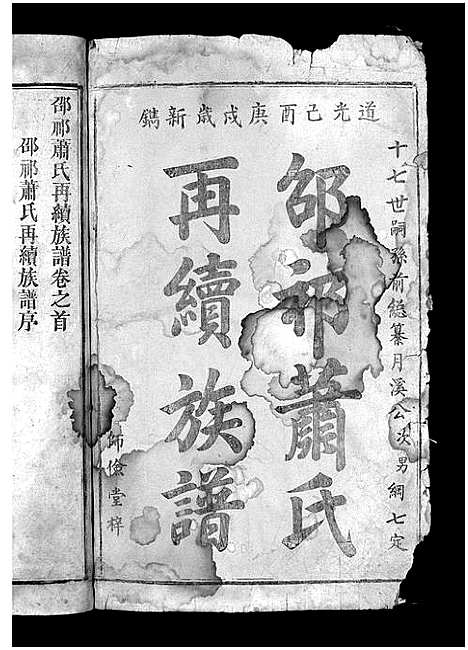 道光己酉庚戌歲新鐫
十七世嗣孫前總纂月溪公次男綱七定
邵祁蕭氏
再續族譜
師儉堂梓
邵祁蕭氏再續族譜卷之首
邵祁蕭氏再續族譜序